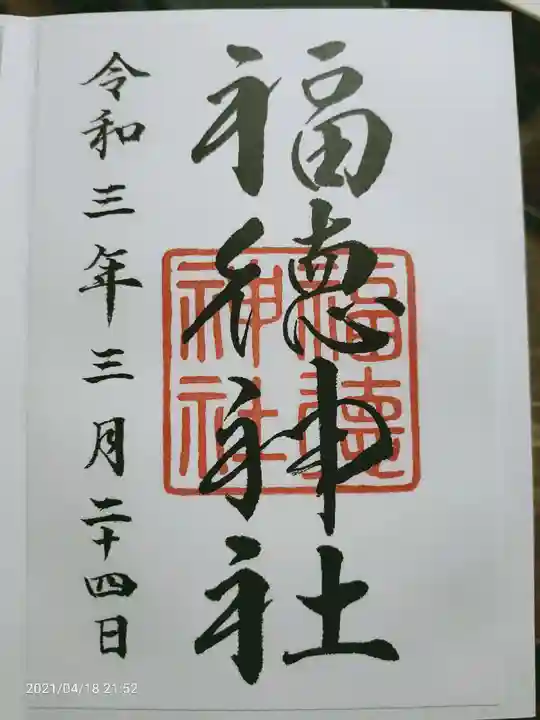 福徳神社
福徳神社
令和三年三月二十四日
2021/04/18 21:52